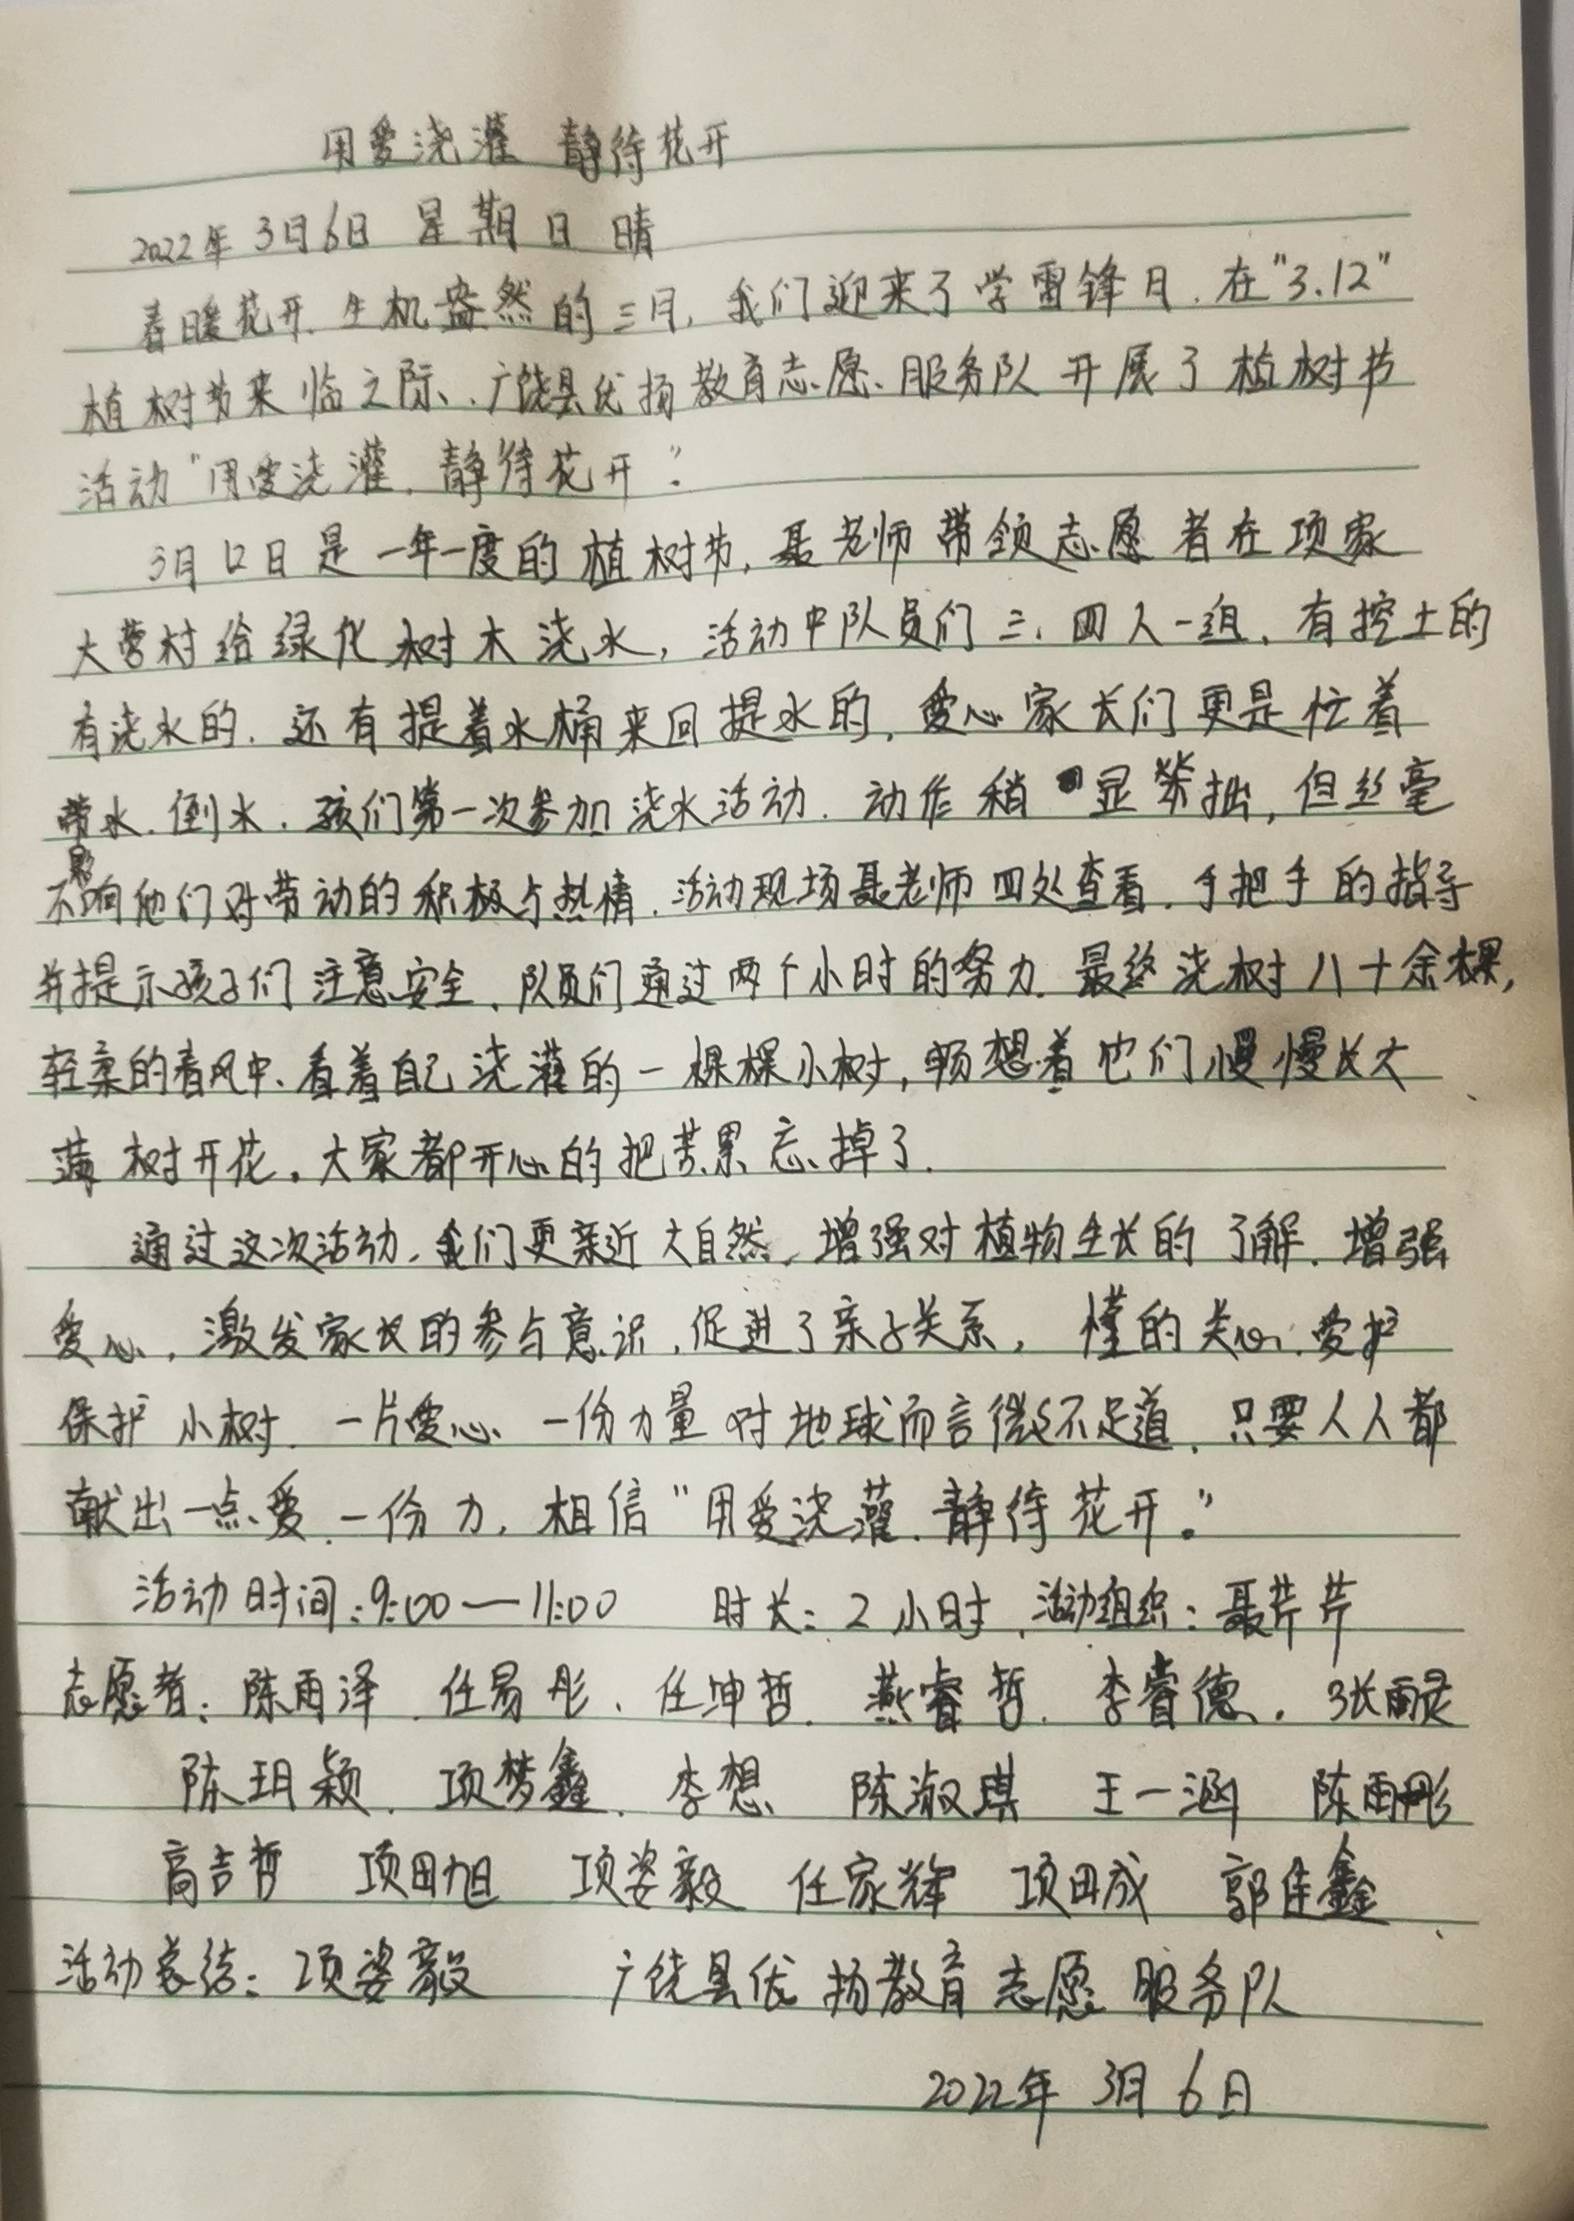 用爱浇灌 静待花开
2022年3月6日 星期日 晴
春暖花开、生机盎然的三月,我们迎来了学雷锋月.在"3.12"
植树节来临之际、广饶县优扬教育志愿服务队开展了植树节
活动"用爱浇灌.静待花开".
3月12日是一年一度的植树节,聂老师带领志愿者在项家
大营村给绿化树木浇水,活动中队员们三、四人一组,有挖土的
有浇水的.还有提着水桶来回提水的,爱心家长们更是忙着
带水.倒水.孩们第一次参加浇水活动.动作稍显笨拙,但丝毫
不影响他们对劳动的积极与热情.活动现场聂老师四处查看.手把手的指导
并提示孩子们注意安全.队员们通过两个小时的努力.最终浇树八十余棵,
轻柔的春风中、看着自己浇灌的一棵棵小树,畅想着它们慢慢长大
满树开花。大家都开心的把苦累忘掉了.
通过这次活动,我们更亲近大自然,增强对植物生长的了解.增强
爱心,激发家长的参与意识,促进了亲子关系,懂的关心.爱护
保护小树.一片爱心、一份力量对地球而言微不足道.只要人人都
献出一点爱.一份力,相信"用爱浇灌.静待花开。"
活动时间:9:00—11:00 时长:2小时.活动组织:聂芹芹
志愿者:陈雨泽.任易彤、任坤哲.燕睿哲.李睿德.张雨灵
陈玥颖.项梦鑫.李想 陈淑琪 王一涵 陈雨彤
高吉哲 项田旭 项姿毅 任家辉 项田成 郭佳鑫
活动总结:项姿毅 广饶县优扬教育志愿服务队
2022年3月6日